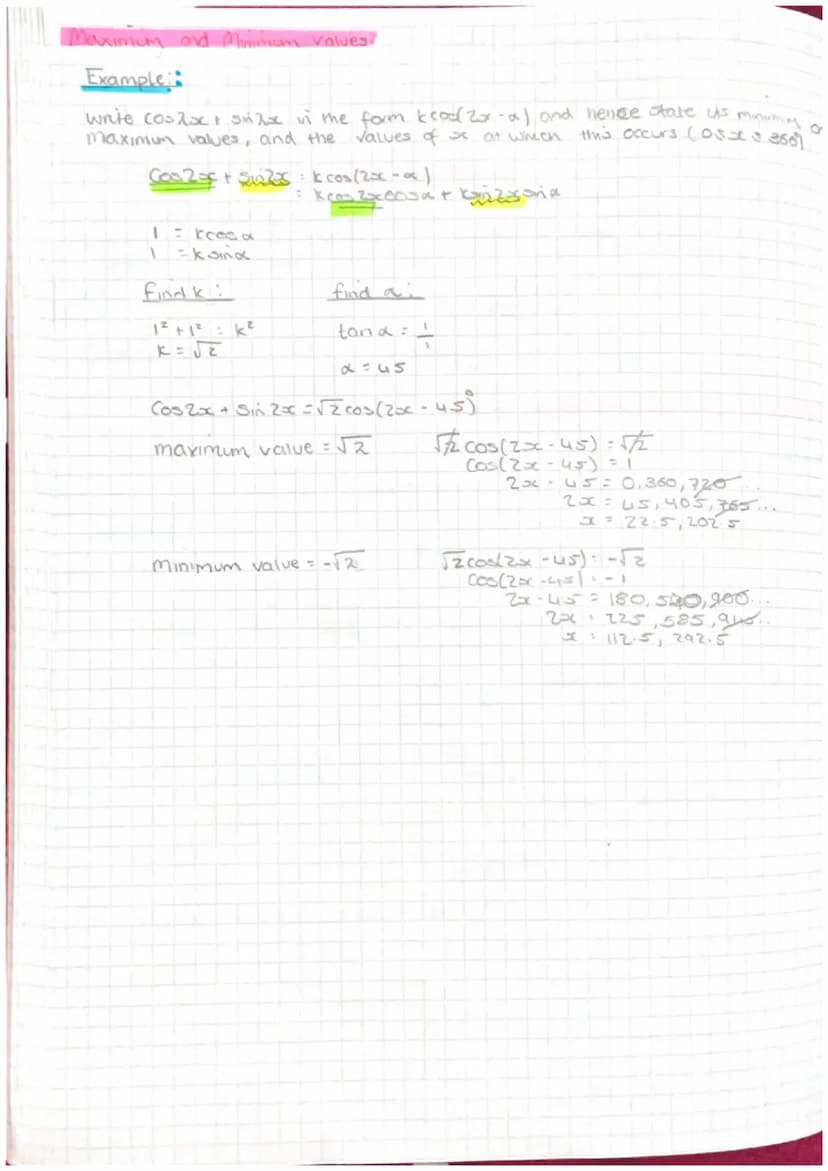 Maximum and Minimum values:
Example:
Write cos2x + sin2x in the form kcos(2x - α) and hence state its minimum or
maximum values, and the values of x at which this occurs (0≤x≤360)
Cos2x + sin2x = kcos(2x - α)
= kcos2xcosα + ksin2xsinα
1 = kcosα
1 = ksinα
find k: find α:
1² + 1² = k² tanα = 1/1
k = √2
α = 45
Cos2x + Sin2x = √2cos(2x - 45)°
maximum value = √2 √2cos(2x - 45) = √2
cos(2x - 45) = 1
2x - 45 = 0, 360, 720...
2x = 45, 405, 765...
x = 22.5, 202.5
minimum value = -√2 √2cos(2x - 45) = -√2
cos(2x - 45) = -1
2x - 45 = 180, 540, 900...
2x = 225, 585, 945...
x = 112.5, 292.5